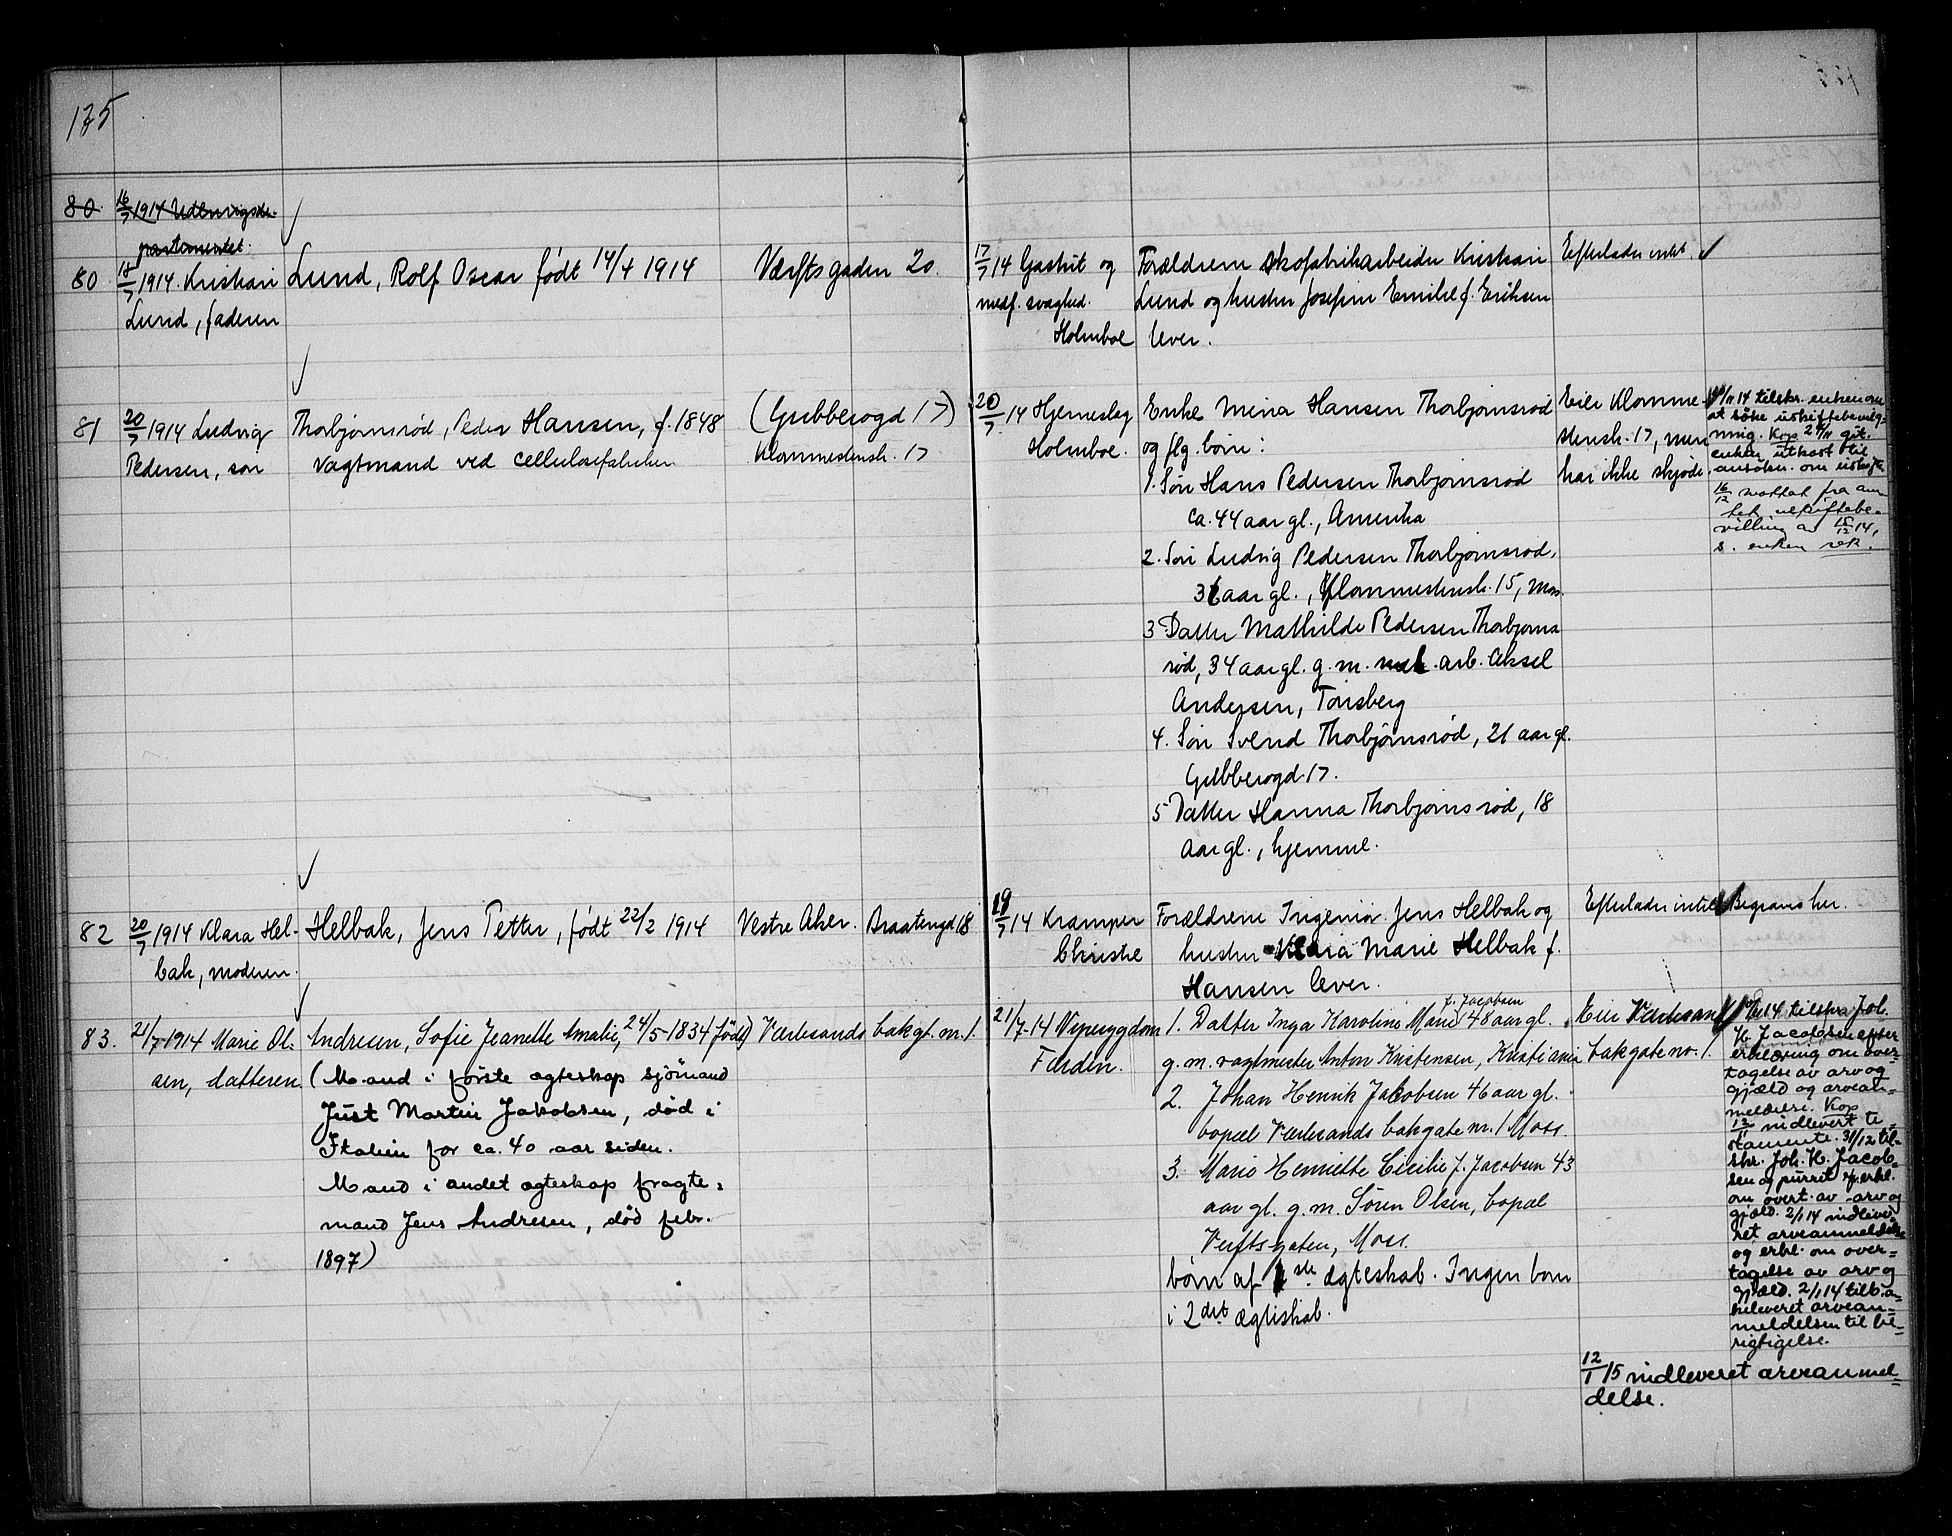 175
80. 16/7 1914 Udenrigsde-
partementet.
80. 18/7 1914. Kristian
Lund, faderen
Lund, Rolf Oscar født 14/4 1914
Værftsgaden 20.
17/7 14 Gastrit og
medf. svaghed.
Holmboe
Forældrene skofabrikarbeider Kristian
Lund og hustru Josefine Emilie f. Eriksen
lever.
Efterlader intet.
81 20/7 1914 Ludvig
Pedersen, søn
Thorbjørnsrød, Peder Hansen, f. 1848
vagtmand ved cellulosefabriken
(Gubberogd 17)
Klommestensk. 17
20/7 14 Hjerneslag
Holmboe.
Enke Mina Hansen Thorbjørnsrød
og flg. børn:
1. Søn Hans Pedersen Thorbjørnsrød
ca. 44 aar gl., Amerika
2. Søn Ludvig Pedersen Thorbjørnsrød,
36 aar gl., Klommestensk. 15, Moss.
3. Datter Mathilde Pedersen Thorbjørns
rød, 34 aar gl. g. m. mek. arb. Aksel
Andersen, Tønsberg
4. Søn Svend Thorbjørnsrød, 21 aar gl.
Gubberogd. 17.
5 Datter Hanna Thorbjørnsrød, 18
aar gl., hjemme.
Eier Klomme-
stensk. 17, men
har ikke skjøde.
14 tilskr. enken om
at söke uskiftebevilg-
ning. Kop git.
enken utkast til
ansökn. om uskifte
16/12 mottat fra am-
tet uskiftebe-
villing av 15/12 14,
s. enken rek.
82 20/7 1914 Klara Hel-
bak, moderen.
Helbak, Jens Petter, født 22/2 1914
Vestre Aker.
Braatengd 18
19/7 14 Kramper
Christie
Forældrene Ingeniør Jens Helbak og
hustru Klara Marie Helbak f.
Hansen lever.
Efterlader intet
Begraves her.
83. 21/7-1914 Marie Ol-
sen, datteren.
Andresen, Sofie Jeanette Amalie, 24/5-1834 født)
(Mand i første ægteskap sjömand
Just Martin Jakobsen, död i
Italien for ca. 40 aar siden.
Mand i andet ægteskap fragte-
mand Jens Andresen, död febr.
1897)
Værlesands bakgt. nr. 1.
21/7-14 Vipesygdom
Furden.
1. Datter Inga Karoline Marie f. Jacobsen 48 aar gl.
g. m. vagtmester Anton Kristensen, Kristiania
2. Johan Henrik Jacobsen 46 aar gl.
bopæl Værlesands bakgate nr. 1 Moss.
3. Marie Henriette Cicilie f. Jacobsen 43
aar gl. g. m. Sören Olsen, bopæl
Verftsgaten, Moss.
børn af 1ste ægteskab. Ingen børn
i 2det ægteskab.
Eier Værlesands
bakgate no. 1.
14 tilskr. Joh.
H. Jacobsen efter
erklæring om over-
tagelse av arv og
gjæld og arvean-
meldelse. Kop
12/11 indlevert te-
stamente. 31/12 til-
skr. Joh. H. Jacob-
sen og purret på erkl.
om overt. av arv og
gjæld. 2/1 14 indleve-
ret arveanmeldelse
og erkl. om over-
tagelse av arv og
gjæld. 2/1 14 tilba-
keleveret arvean-
meldelsen til be-
rigtigelse.
12/1 15 indleveret arveanmel-
delse.